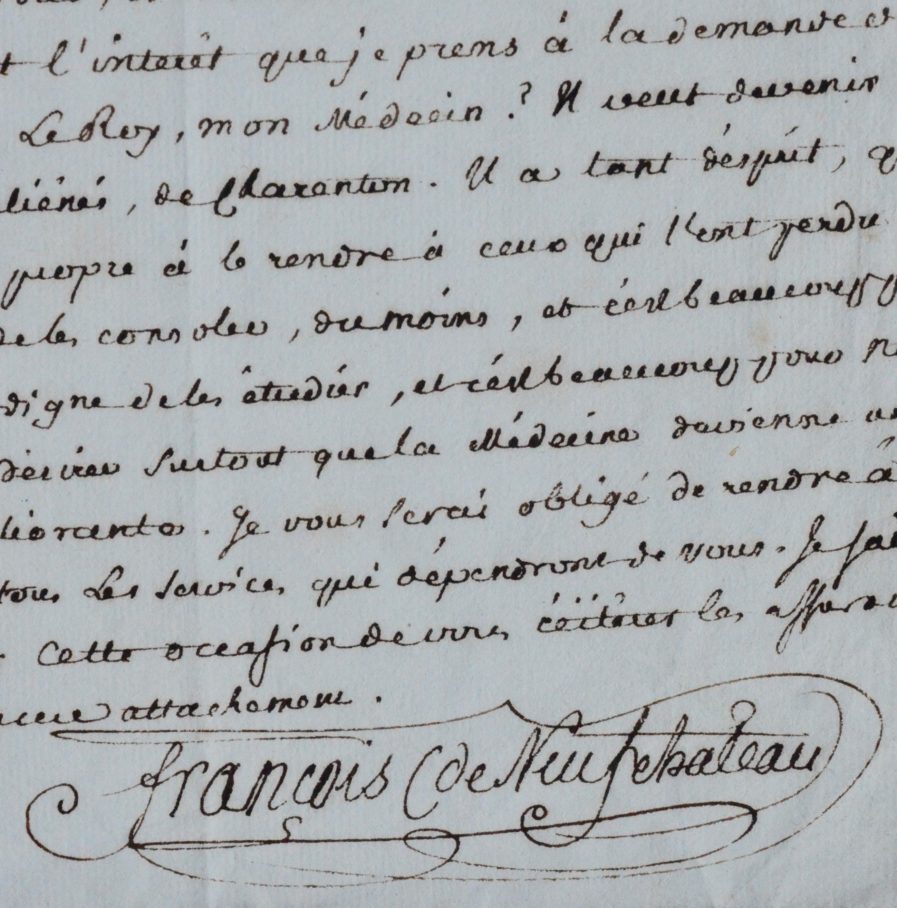 t l'interêt que je prens à la demande et
Le Roy, mon Médecin ? Il veut devenir
liénés, de Charanton. Il a tant d'esprit, q
propre à le rendre à ceux qui l'ont perdu
de les consoler, du moins, et c'est beaucoup p
digne de les étudier, et c'est beaucoup pour
désirer surtout que la Médecine devienne
liorante. Je vous serai obligé de rendre à
tous les services qui dépendront de vous. Je sai
cette occasion de vous réïtérer les assuran
attachement.
françois (de Neufchateau)